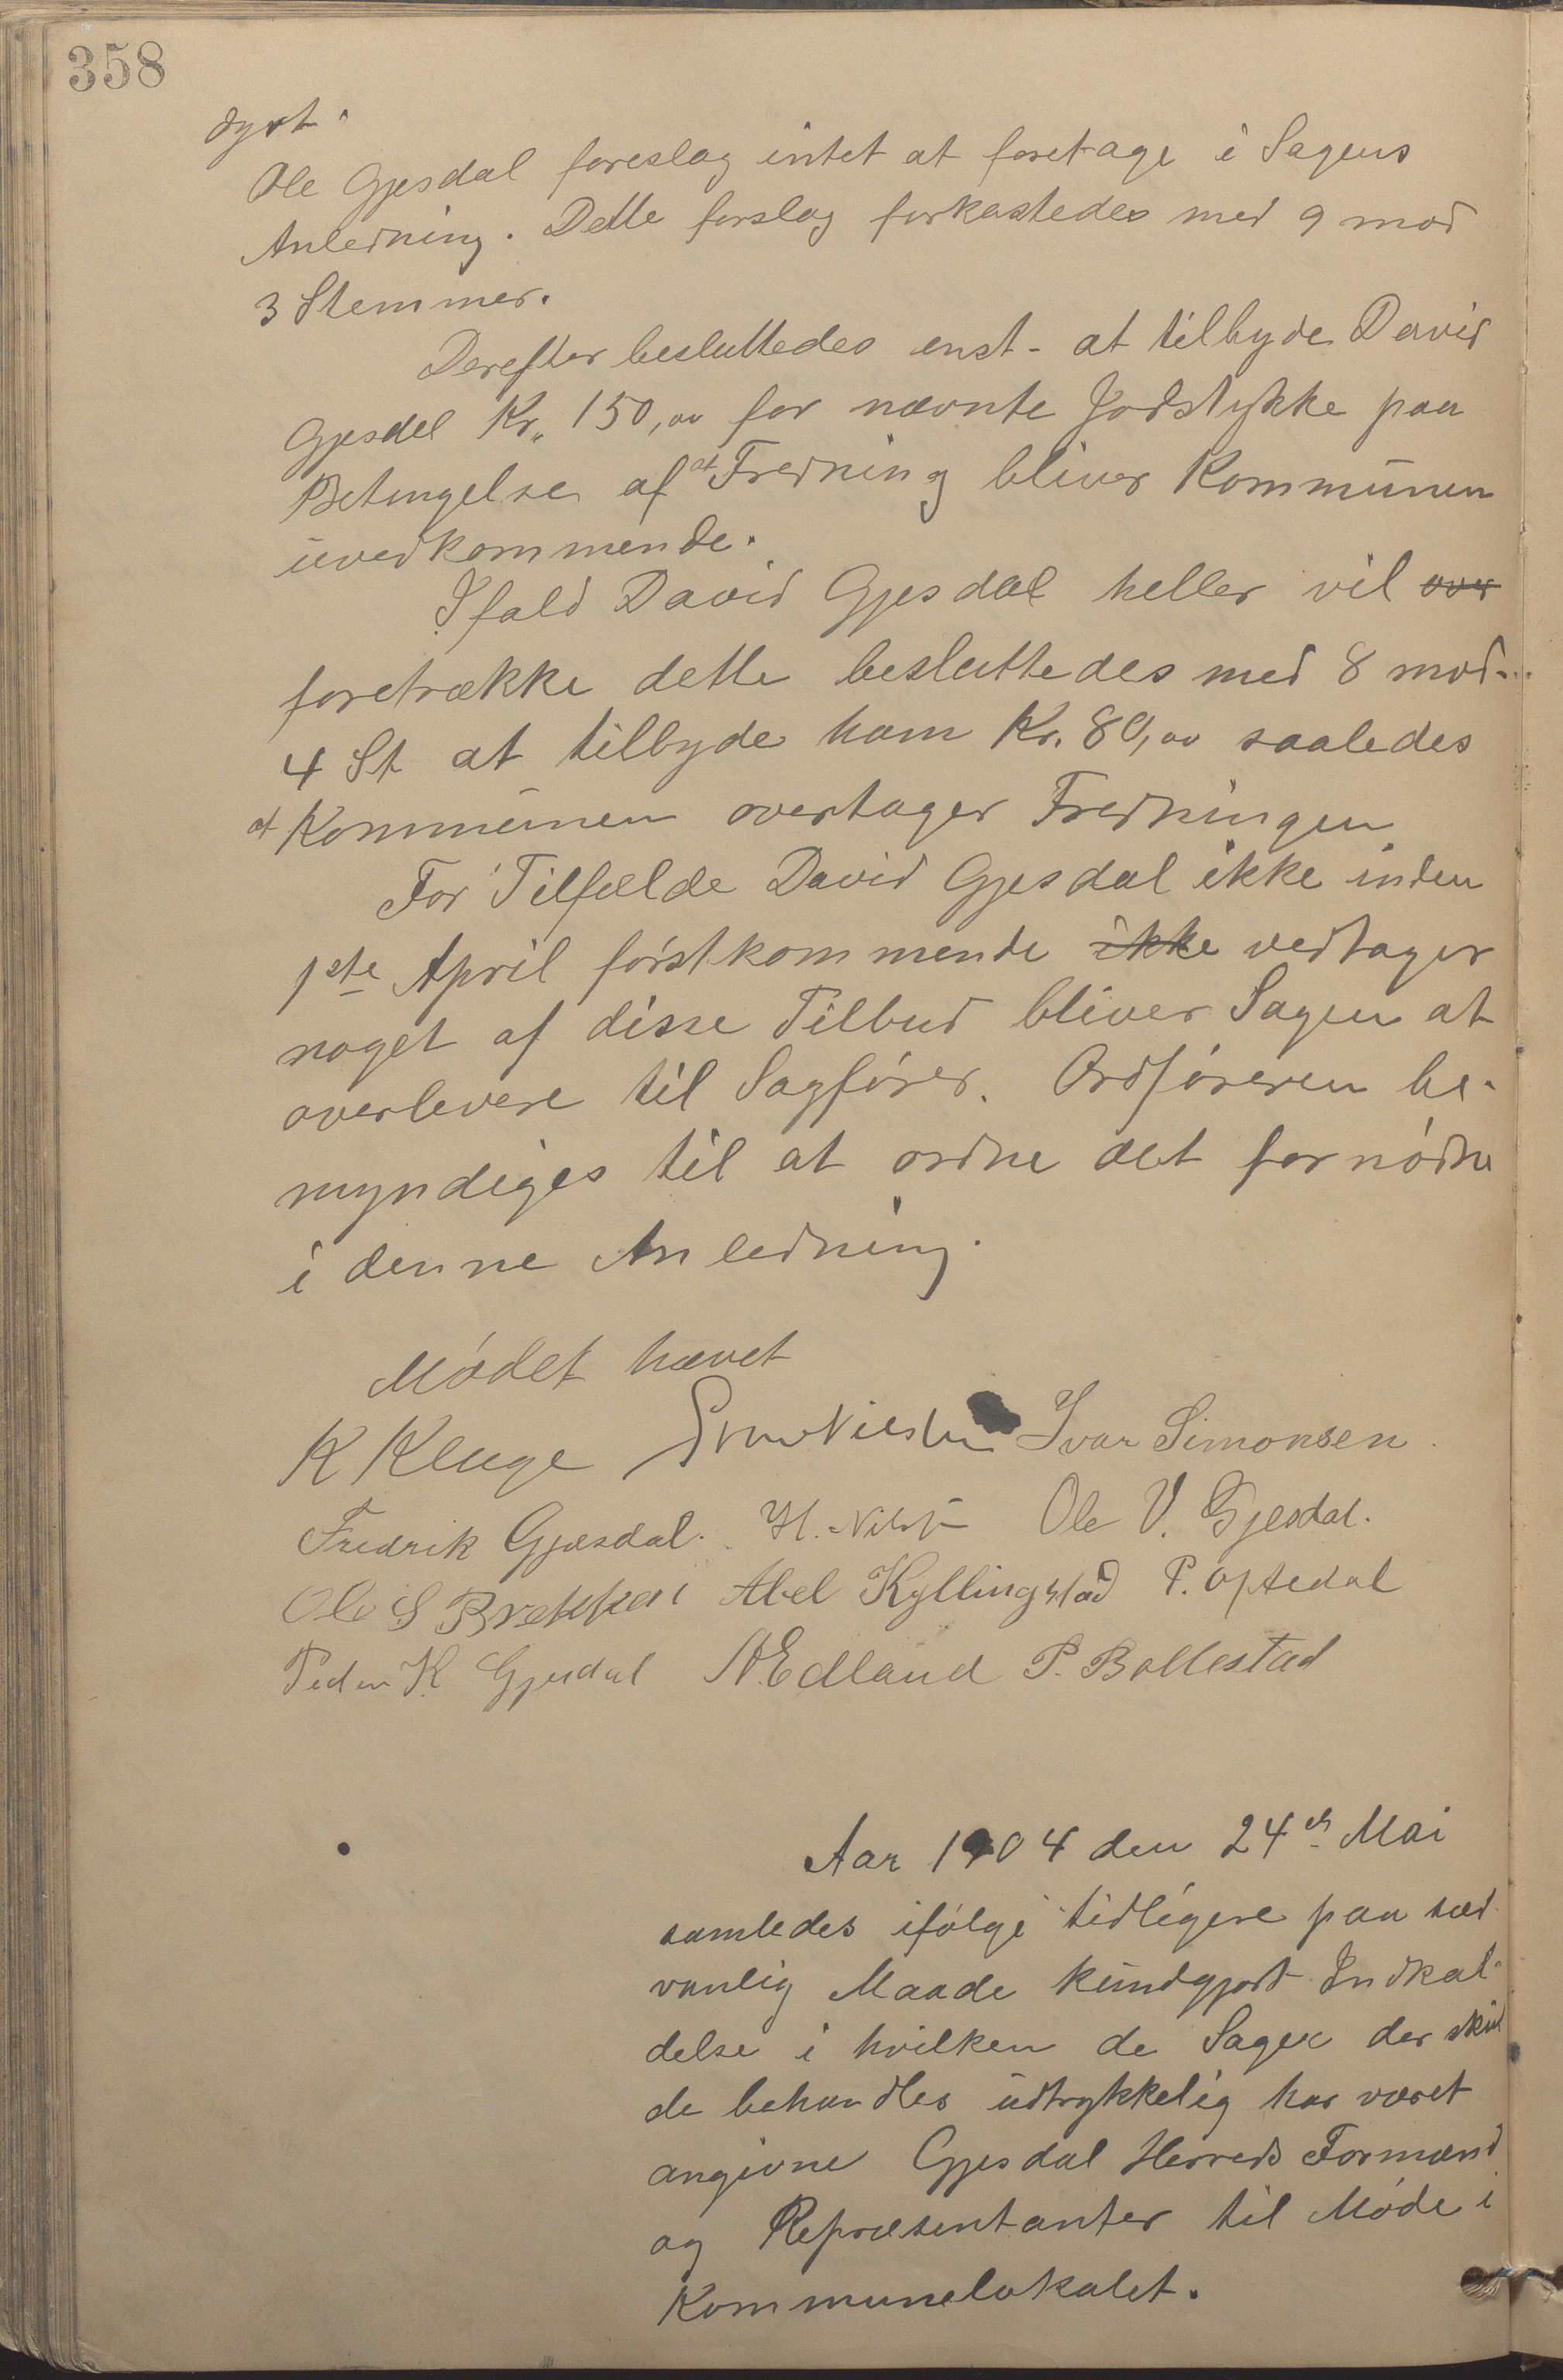 358
dyrt.
Ole Gjesdal foreslog intet at foretage i Sagens
Anledning. Dette forslag forkastedes med 9 mod
3 Stemmer.
Derefter besluttedes enst. at tilbyde David
Gjesdal Kr. 150,00 for nævnte Jordstykke paa
Betingelse af at Fredning bliver Kommunen
uvedkommende.
Ifald David Gjesdal heller vil over
foretrække dette besluttedes med 8 mod
4 St at tilbyde ham Kr. 80,00 saaledes
at Kommunen overtager Fredningen
For Tilfælde David Gjesdal ikke inden
1ste April førstkommende ikke vedtager
noget af disse Tilbud bliver Sagen at
overlevere til Sagfører. Ordføreren be-
myndiges til at ordne det fornødne
i denne Anledning.
Mødet hævet
K Kluge Ivar Simonsen.
Fredrik Gjesdal. H. Ole V. Gjesdal.
Ole S Brekken Abel Kyllingstad P. Oftedal
Peder K Gjesdal A. Edland P. Bollestad
Aar 1904 den 24de Mai
samledes ifølge tidligere paa sæd
vanlig Maade kundgjort Indkal-
delse i hvilken de Sager der skul
de behandles udtrykkelig har været
angivne Gjesdal Herreds Formænd
og Repræsentanter til Møde i
Kommunelokalet.